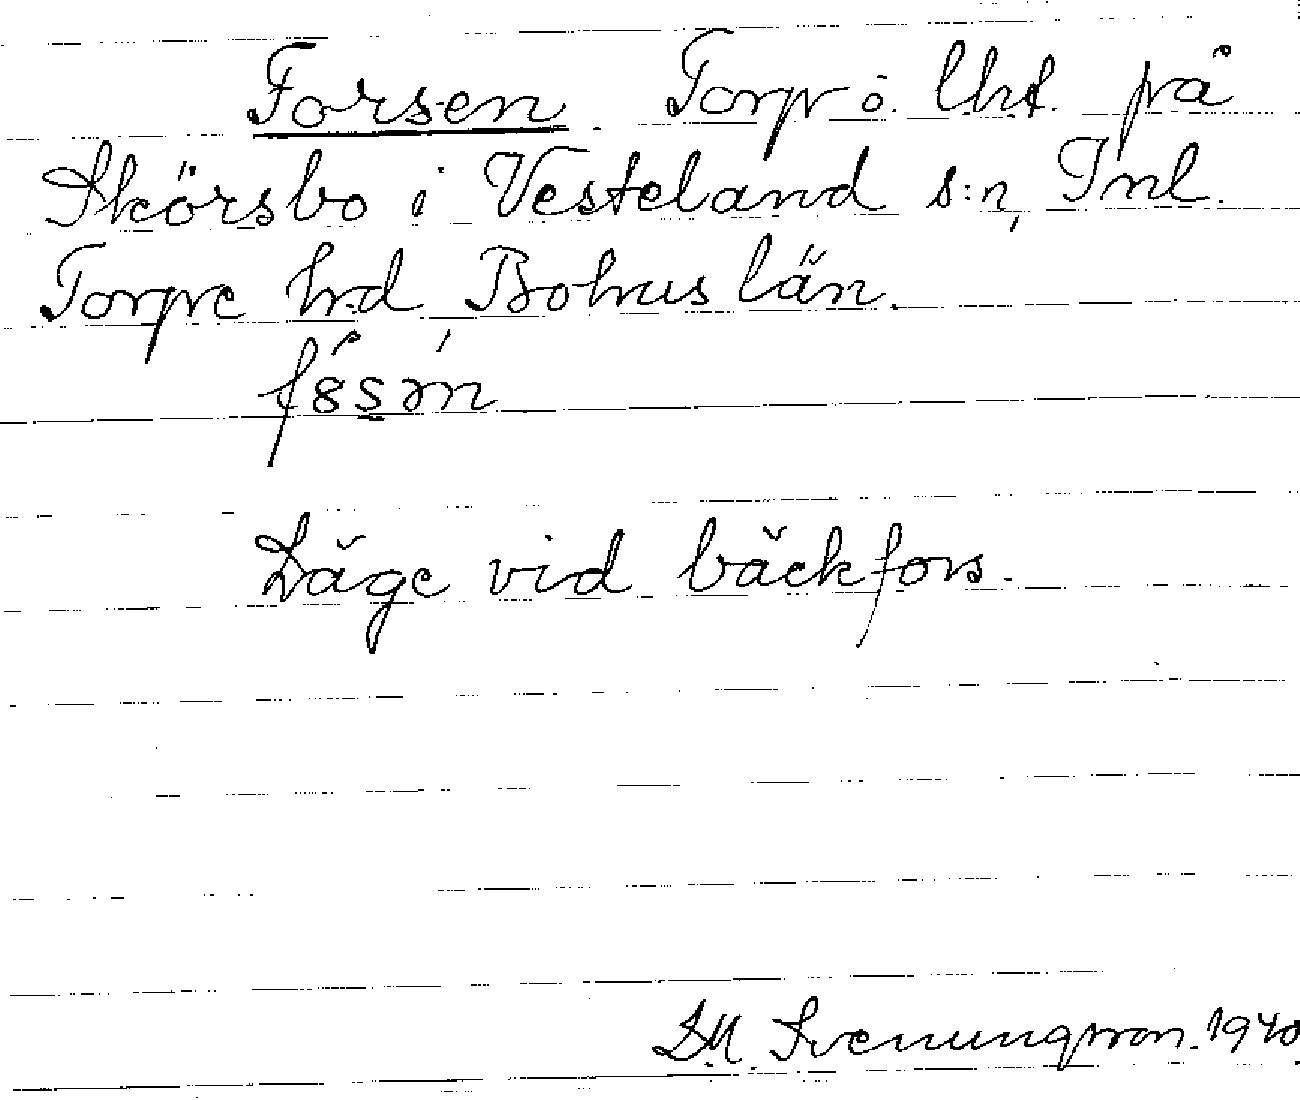 Forsen Torp o. lht. på
Skörsbo i Vesteland s:n, Inl.
Torpe hrd Bohuslän.
Läge vid bäckfors.
D.M. Svenungsson. 1940